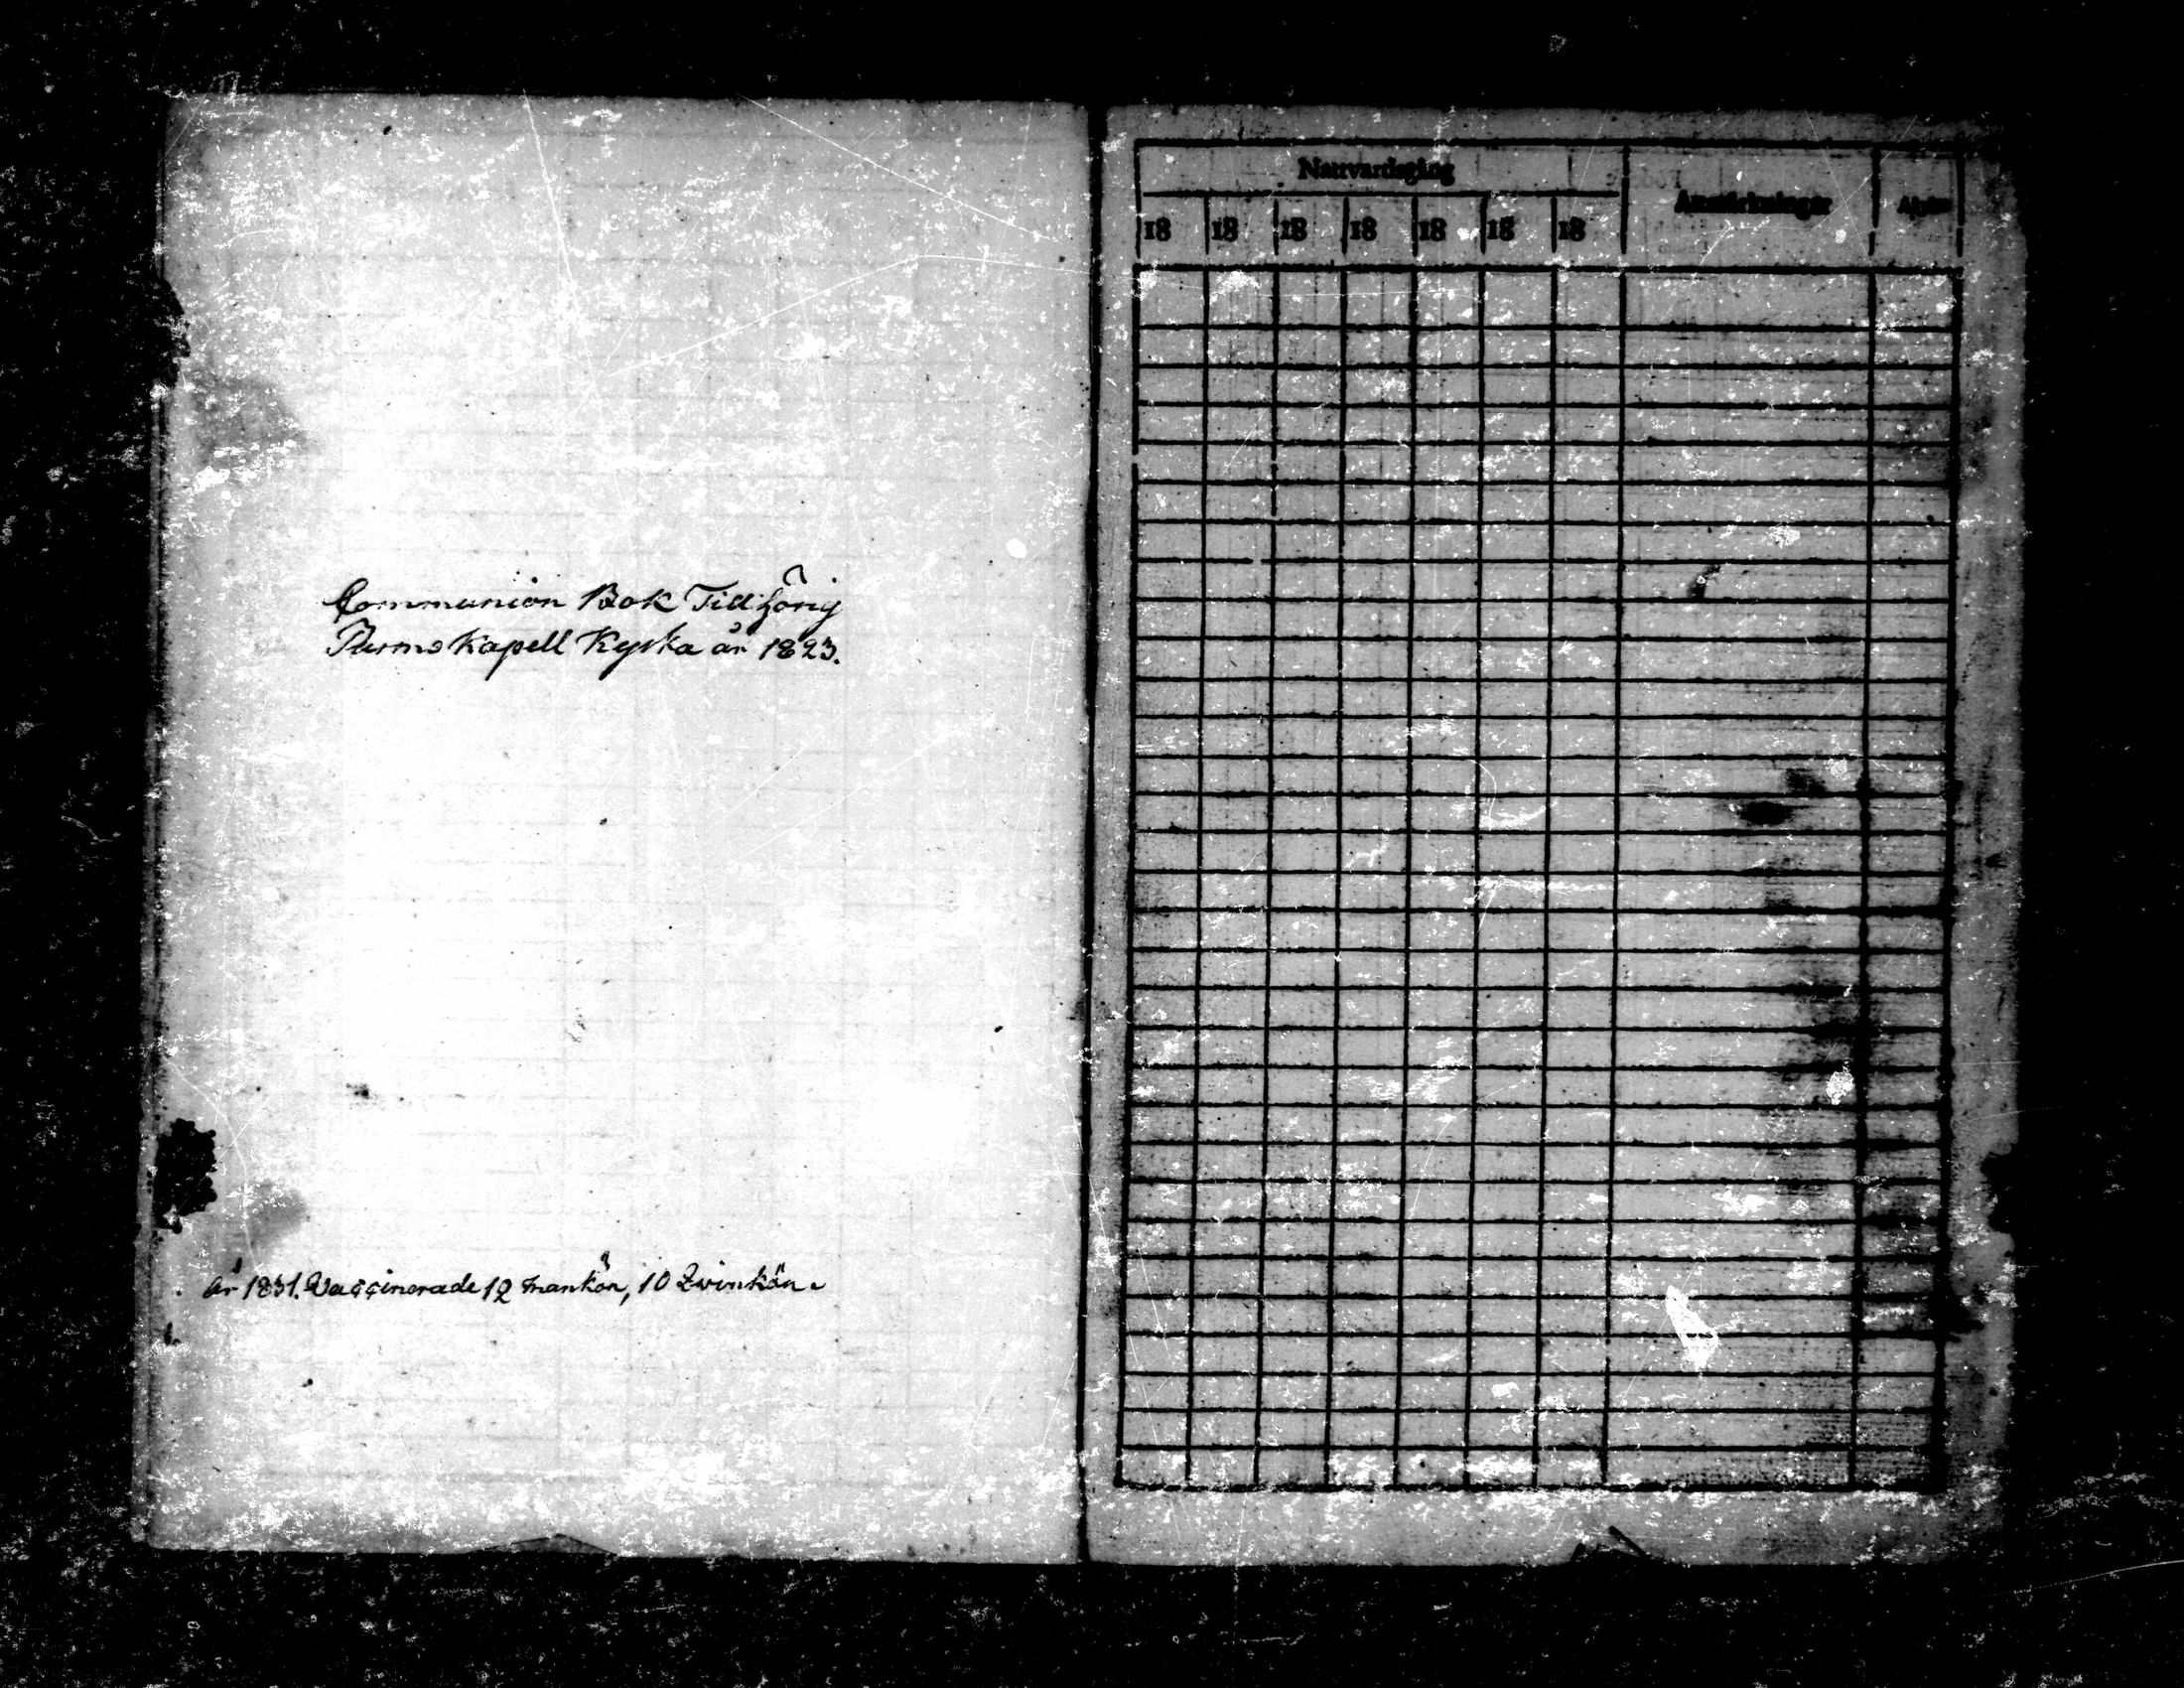 Communion Bok Tillhörig
Purmo Kapell Kyrka år 1823.
år 1831. Vaccinerade 12 mankön, 10 Qvinkön.
Nattvardsgång
Anmärkningar
18 18 18 18 18 18 18